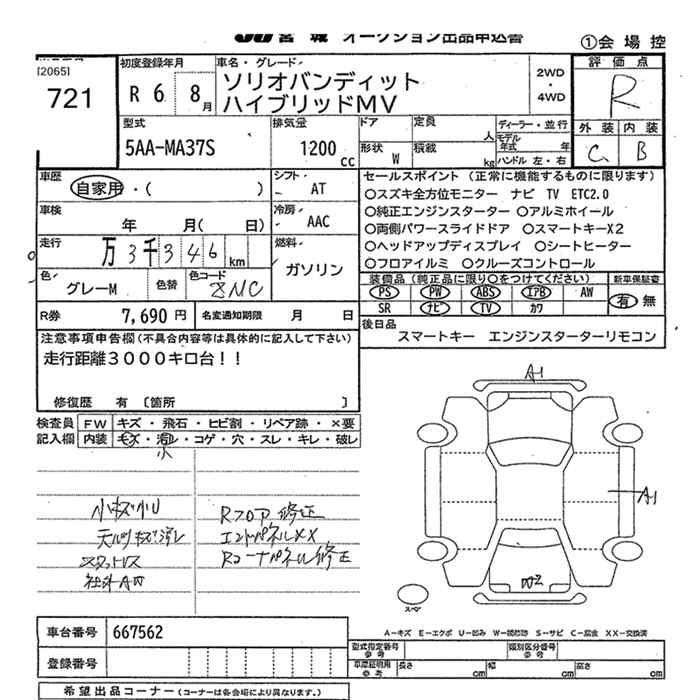 JU 宮城 オークション出品申込書
①会場控
[2065]
721
初度登録年月
R 6 8月
車名・グレード
ソリオバンディット
ハイブリッドMV
2WD
・
4WD
評価点
R
外装 内装
C B
型式
5AA-MA37S
排気量
1200 cc
ドア
形状 W
定員 人
積載 kg
ディーラー・並行
モデル年式 年
ハンドル 左・右
車歴
自家用・( )
シフト
AT
車検
年 月( 日)
冷房
AAC
走行
万3千346km
燃料
ガソリン
色
グレーM
色替
色コード
ZMC
R券 7,690円
名変通知期限 月 日
セールスポイント (正常に機能するものに限ります)
○スズキ全方位モニター ナビ TV ETC2.0
○純正エンジンスターター ○アルミホイール
○両側パワースライドドア ○スマートキーX2
○ヘッドアップディスプレイ ○シートヒーター
○フロアイルミ ○クルーズコントロール
装備品 (純正品に限り○をつけてください)
PS PW ABS エアB AW
SR ナビ TV カワ
新車保証書
有 無
後日品
スマートキー エンジンスターターリモコン
注意事項申告欄 (不具合内容等は具体的に記入して下さい)
走行距離3000キロ台!!
修復歴 有 〔箇所 〕
検査員記入欄
FW キズ・飛石・ヒビ割・リペア跡・×要
内装 キズ・汚レ・コゲ・穴・スレ・キレ・破レ
小
小キズ小U
スタットレス
社外AW
Rフロア修正
エンドパネルXX
Rコーナーパネル修正
A1
A1
W2
スペア
A-キズ E-エクボ U-凹み W-補修跡 S-サビ C-腐食 XX-交換済
車台番号 667562
登録番号
型式指定番号 参考
類別区分番号 参考
車庫証明用 参考
長さ cm 幅 cm 高さ cm
希望出品コーナー (コーナーは各会場により異なります。)